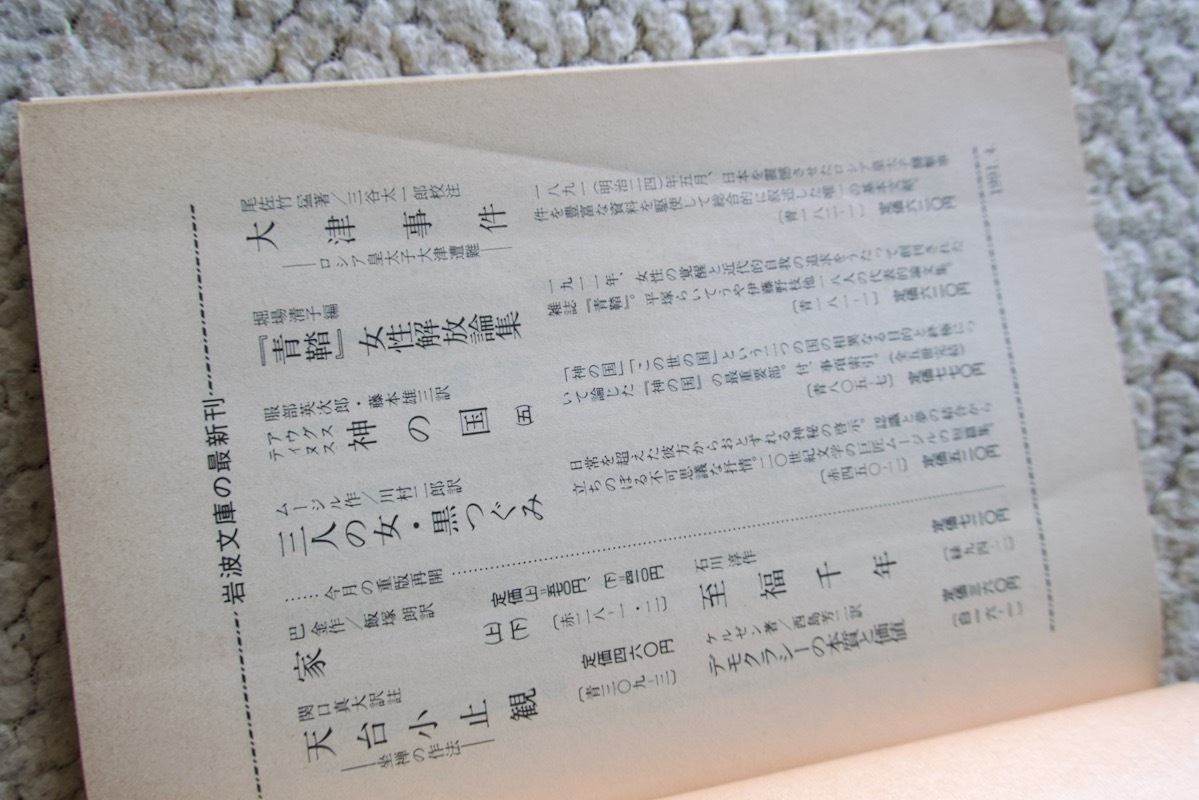 岩波文庫の最新刊
尾佐竹 猛著／三谷太一郎校注
大津事件
―ロシア皇太子大津遭難―
一八九一(明治二四)年五月、日本を震撼させたロシア皇太子襲撃事
件を豊富な資料を駆使して総合的に叙述した唯一の基本文献。
〔青一八二-一〕 定価六二〇円
堀場清子編
『青鞜』女性解放論集
一九一一年、女性の覚醒と近代的自我の追求をうたって創刊された
雑誌『青鞜』。平塚らいてうや伊藤野枝他一八人の代表的論文集。
〔青一八一-一〕 定価六二〇円
アウグスティヌス
服部英次郎・藤本雄三訳
神の国 (五)
「神の国」「この世の国」という二つの国の相異なる目的と終極につ
いて論じた『神の国』の最重要部。付、事項索引。(全五冊完結)
〔青八〇五-七〕 定価七七〇円
ムージル作／川村二郎訳
三人の女・黒つぐみ
日常を超えた彼方からおとずれる神秘の啓示。認識と夢の結合から
立ちのぼる不可思議な抒情。二〇世紀文学の巨匠ムージルの短篇集。
〔赤四五〇-一〕 定価五二〇円
……今月の重版再開……
巴 金作／飯塚 朗訳
家 (上)(下)
定価(上)五七〇円、(下)四一〇円
〔赤二八-一・二〕
石川淳作
至福千年
定価七二〇円
〔緑九四-二〕
関口真大訳註
天台小止観
―坐禅の作法―
定価四六〇円
〔青三〇九-三〕
ケルゼン著／西島芳二訳
デモクラシーの本質と価値
定価三六〇円
〔白一六-一〕
1991. 4.